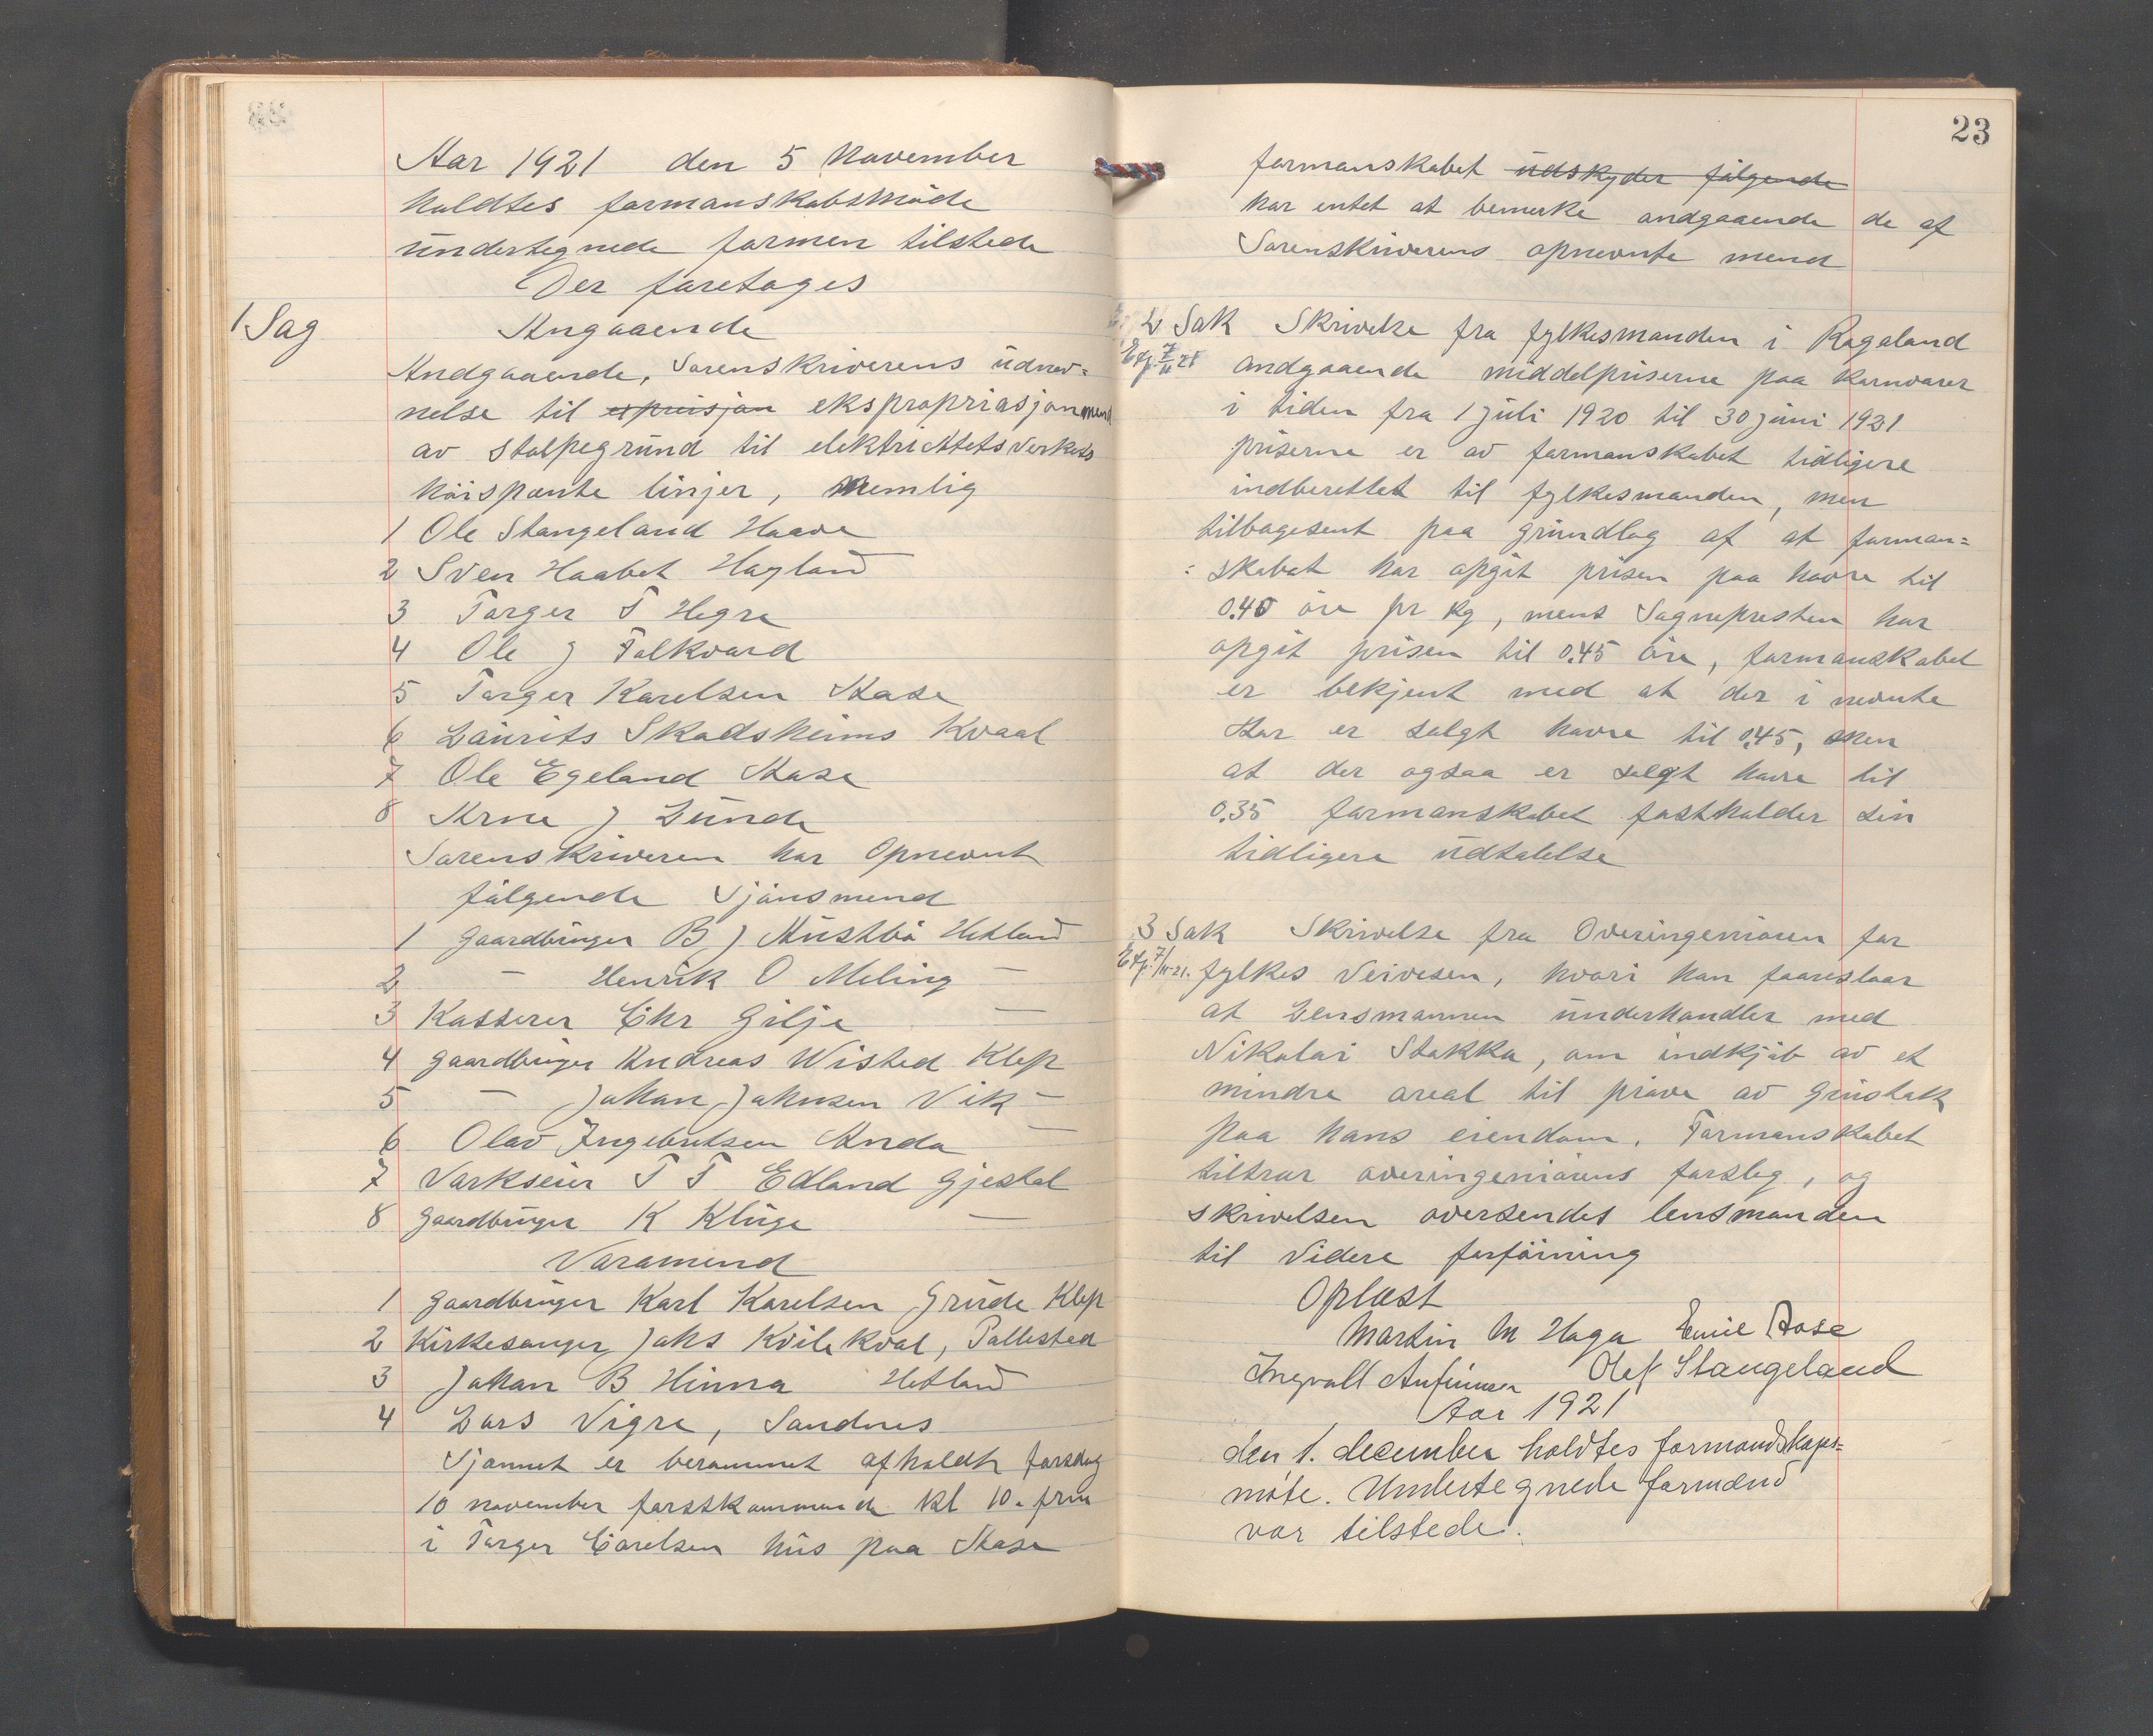 Aar 1921 den 5 November
holdtes formanskabsmöde
undertegnede formen tilstede
Der foretoges
1 Sag
Angaaende
Andgaaende, Sorenskriverens udnev=
nelse til expreisjon ekspropriasjonmend
av stolpegrund til elektrictetsverkets
höispente linjer, nemlig
1 Ole Stangeland Haave
2 Sven Haabet Hogland
3 Torger T Hegre
4 Ole J Folkvord
5 Torger Karelsen Aase
6 Laurits Skadsheims Kvaal
7 Ole Egeland Aase
8 Arne J Lunde
Sorenskriveren har Opnevnt
fölgende Sjönsmend
1 Gaardbruger B J Austbö Hetland
2 — Henrik O Meling —
3 Kasserer Chr Gilje —
4 Gaardbruger Andreas Wisted Klep
5 — Johan Johnsen Vik —
6 Olav Ingebretsen Anda —
7 Verkseier T T Edland Gjestal
8 Gaardbruger K Kluge —
Varamend
1 Gaardbruger Karl Karelsen Grude Klep
2 Kirkesanger Johs Kvilekval,
3 Johan B Hinna Hetland
4 Lars Vigre, Sandnes
Sjönnet er berammet afholdt Torsdag
10 november förstkommende kl 10. frm
i Torger Carelsen hus paa Aase
23
formanskabet udskyder fölgende
har intet at bemerke andgaaende de af
Sorenskriverens opnevnte mend
2 Sak Skrivelse fra fylkesmanden i Rogaland
Exp. 7/11 21 andgaaende middelpriserne paa kornvarer
i tiden fra 1 juli 1920 til 30 juni 1921
priserne er av formanskabet tidligere
indberettet til fylkesmanden, men
tilbagesent paa grundlag af at forman=
=skabet har opgit prisen paa havre til
0.40 öre pr kg, mens Sognepresten har
opgit prisen til 0.45 öre, formanskabet
er bekjent med at der i nevnte
Aar er solgt havre til 0.45, men
at der ogsaa er solgt havre til
0.35 formanskabet fastholder sin
tidligere udtalelse
3 Sak Skrivelse fra Overingeniören for
Exp. 7/11-21. fylkes Veivesen, hvori han foareslaar
at Lensmannen underhandler med
Nikolai Stokka, om indkjöb av et
mindre areal til pröve av Grustak
paa hans eiendom. Formanskabet
tiltrær overingeniörens forslag, og
skrivelsen oversendes lensmanden
til Videre forföining
Oplæst
Martin M Haga Emil Aase
Ingvall Anfinnsen Olef Stangeland
Aar 1921
den 1. december holdtes formandskaps=
möte. Undertegnede formænd
var tilstede.